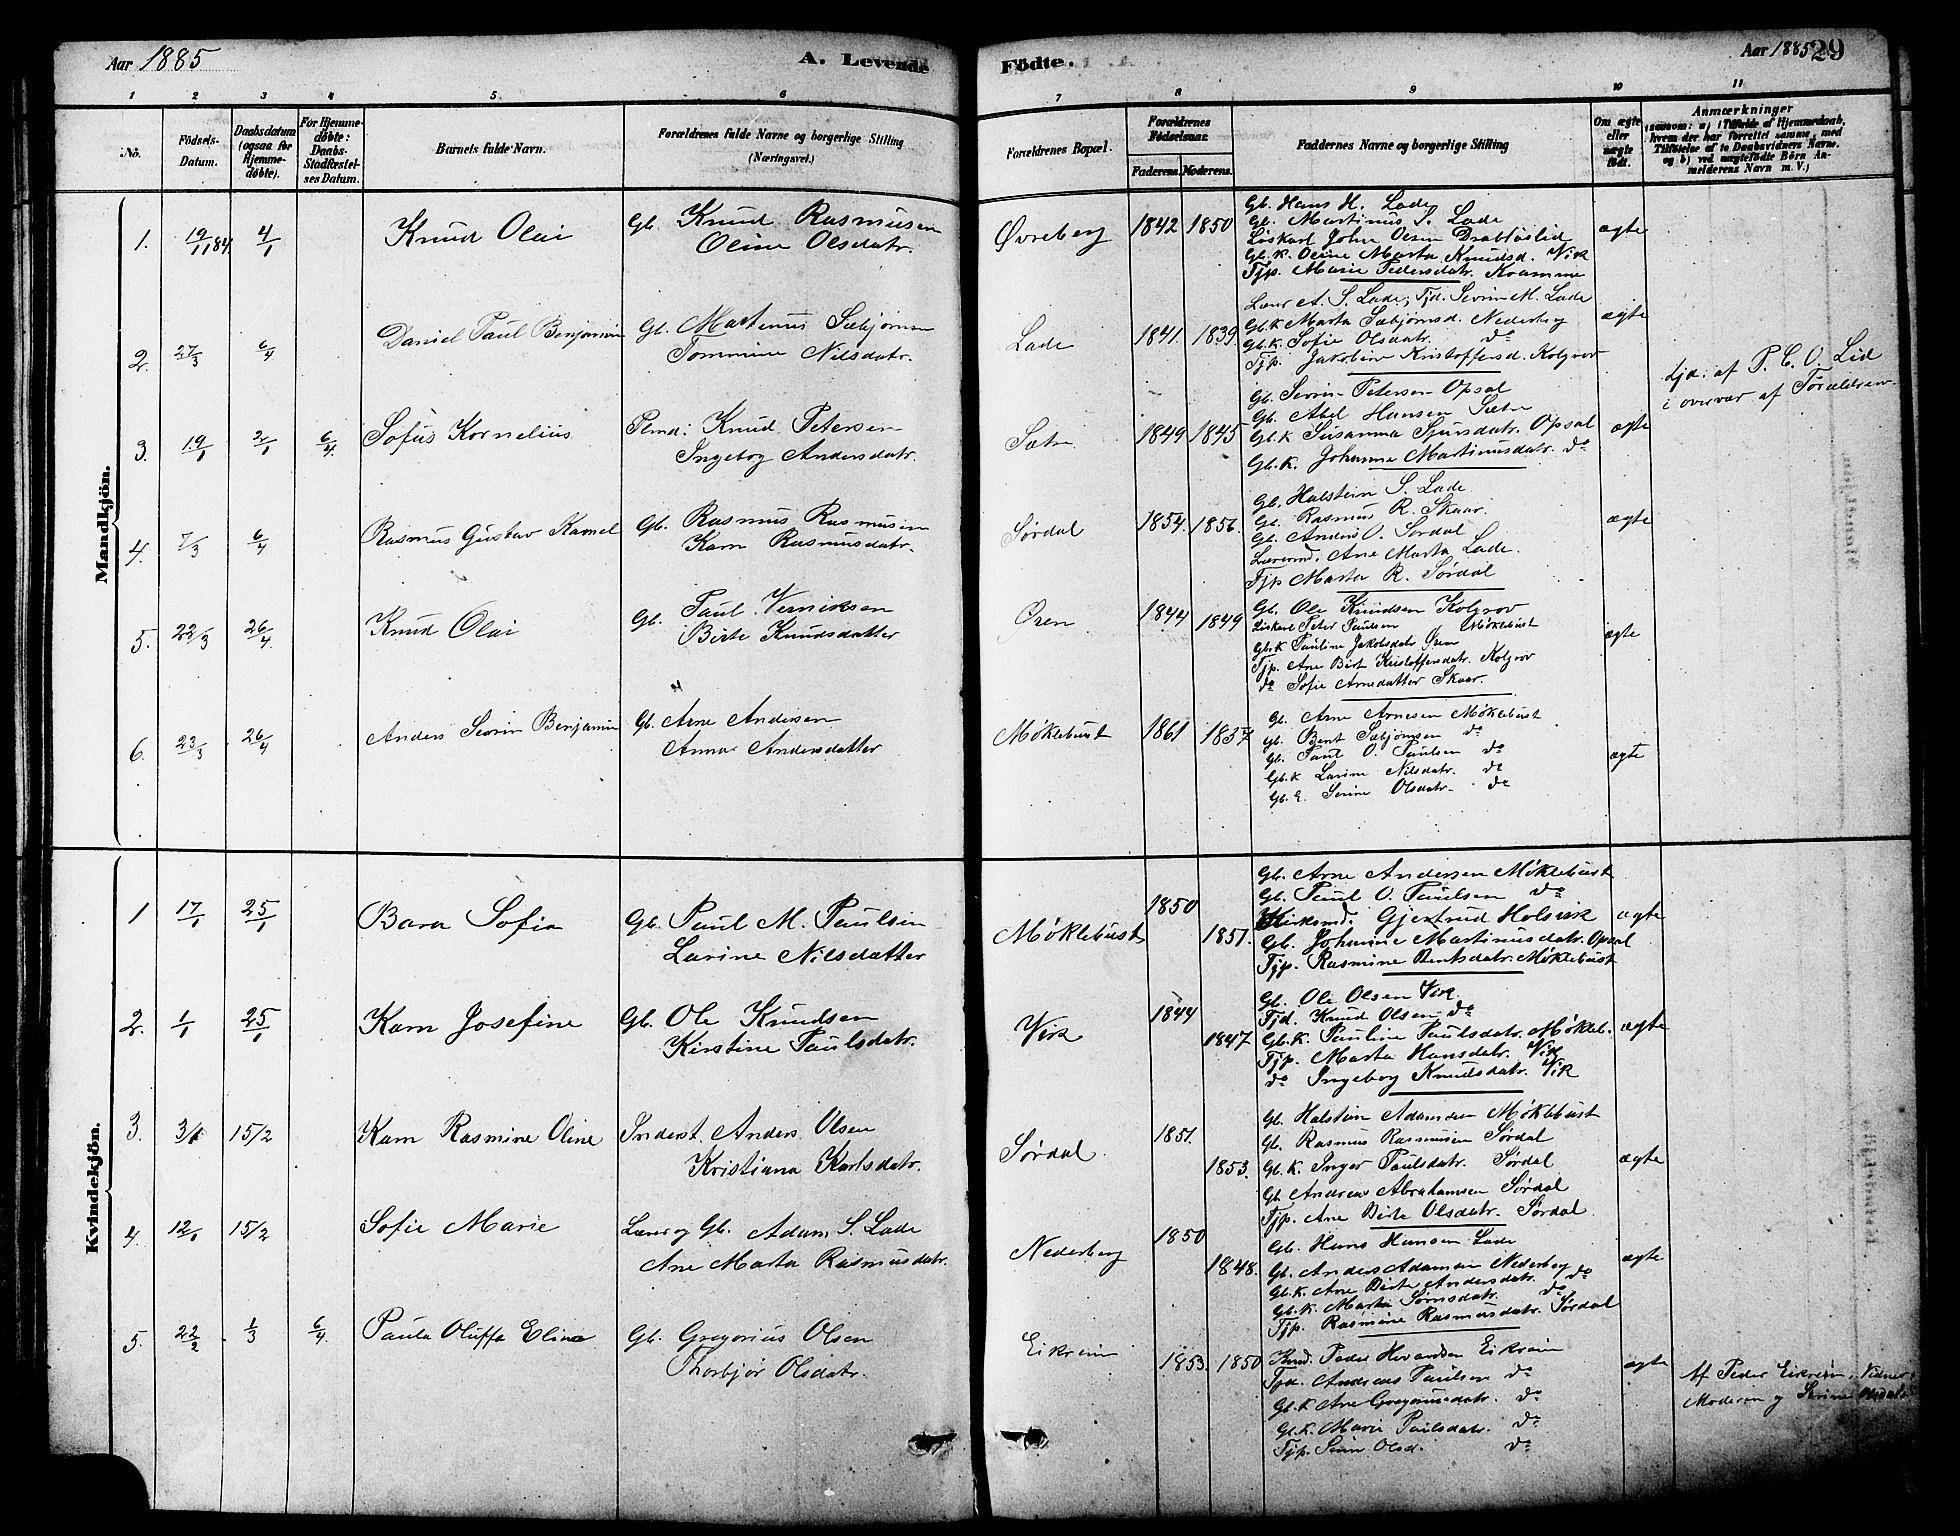 Aar 1885
A. Levende Födte.
Aar 1885 29
1 2 3 4 5 6 7 8 9 10 11
No.
Födsels-Datum.
Daabsdatum (ogsaa for Hjemmedöbte).
For Hjemmedöbte: Daabs-Stadfæstelses Datum.
Barnets fulde Navn.
Forældrenes fulde Navne og borgerlige Stilling (Næringsvei.)
Forældrenes Bopæl.
Forældrenes Födselsaar.
Faderens. Moderens.
Faddernes Navne og borgerlige Stilling
Om ægte eller uægte födt.
Anmærkninger
(saasom: a) i Tilfælde af Hjemmedaab, hvem der har forrettet samme, med Tilföielse af to Daabsvidners Navne, og b) ved uægtefödte Börn Anmelderens Navn m. V.)
Mandkjön.
1. 19/11 84 4/1 Knud Olai Gb. Knud Rasmusen
Oline Olsdatr.
Øvreberg 1842 1850
Gb. Hans H. Lade
Gb. Martinus S. Lade
Løskarl John Olsen Drabløslid
Gb. K. Oline Marta Knudsd. Vik
Tjp. Marie Pedersdatr. Kvamme
ægte
2. 27/3 6/4 Daniel Paul Benjamin Gb. Martinus Sæbjørnn
Tommine Nilsdatr.
Lade 1841. 1839.
Lærer A. S. Lade; Tjd. Severin M. Lade
Gb. K Marta Sæbjørnsd. Nederberg
Gb. K. Sofie Olsdatr. do
Tjp. Jakobine Kristoffersd. Kolgrov
ægte
3. 19/1 2/1 6/4 Sofus Kornelius Plmd: Knud Petersen
Ingeborg Andersdatr.
Sætr 1849 1845
Gb. Severin Petersen Opsal
Gb. Abel Hansen Sætre
Gb. K Susanna Sjursdatr. Opsal
Gb. K. Johanne Martinusdatr. do
ægte
Hjd: af P. C. O. Lid
i overvær af Forældrene
4. 7/3 6/4 Rasmus Gustav Kornel Gb. Rasmus Rasmusen
Karn Rasmusdatr.
Sørdal 1854. 1856.
Gb. Halstein S. Lade
Gb. Rasmus R. Skaar
Gb. Anders O. Sørdal
Lærermd. Ane Marta Lade.
Tjp Marta R. Sørdal
ægte
5. 22/3 26/4 Knud Olai Gb. Paul Verniksen
Birte Knudsdatter
Øren 1844 1849
Gb. Ole Knudsen Kolgrov
Løskarl Peter Paulsen Møklebust
Gb. K Pauline Jakobsdatr Øren
Tjp. Ane Birt Kristoffersdatr. Kolgrov
do Sofie Arnedatter Skaar.
ægte
6. 23/3 26/4 Anders Severin Benjamin Gb. Arne Andersen
Anna Andersdatter
Møklebust 1861 1837
Gb. Arne Arnesen Møklebust
Gb. Bernt Sæbjørnsen do
Gb. Paul O. Paulsen do
Gb. K Larine Nilsdatr. do
Gb. E. Serine Olsdatr. do
ægte
Kvindekjön.
1 17/1 25/1 Bara Sofia Gb. Paul M. Paulsen
Larine Nilsdatter
Møklebust 1850 1851.
Gb. Arne Andersen Møklebust
Gb. Paul O. Paulsen do
Kirksmd. Gjertrud Holsvik
Gb. Johanne Martinusdatr. Opsal
Tjp. Rasmine Berntsdatr. Møklebust
ægte
2. 1/1 25/1 Karn Josefine Gb. Ole Knudsen
Kirstine Paulsdatr.
Vik 1844 1847
Gb. Ole Olsen Vik
Tjd. Knud Olsen do
Gb. K. Pauline Paulsdatr. Mökleb.
Tjp. Marta Hansdatr. Vik
do Ingeborg Knudsdatr. Vik
ægte
3. 3/1 15/2 Karn Rasmine Oline Inderst. Anders Olsen
Kristiana Karlsdatr.
Sørdal 1851. 1853.
Gb. Halstein Adamsen Møklebust
Gb. Rasmus Rasmusen Sørdal
Gb. K. Inger Paulsdatr. Sørdal
Gb. Andreas Abrahamsen Sørdal
Tjp. Ane Birte Olsdatr. Sørdal
ægte
4. 12/1 15/2 Sofie Marie Lærer og Gb. Adam S. Lade
Ane Marta Rasmusdatr.
Nederberg 1850 1848.
Gb. Hans Hansen Lade
Gb. Anders Adamsen Nederberg
Gb. K. Ane Birte Andersdatr. do
Gb. K. Martha Sørnsdatr. do
Tjp. Rasmine Rasmusdatr. Sørdal
ægte
5. 22/2 1/3 6/4 Paula Oluffa Eline Gb. Gregorius Olsen
Thorbjør Olsdatr.
Eikreim 1853. 1850
Peder Hovardsen Eikreim
Tjd. Andreas Paulsen do
Gb. K Ane Gregoriusdatr. do
Gb. K. Marie Paulsdatr. do
Tjp. Olsd. do
ægte
Af Peder Eikreim, Vidner
Moderen og Serine Olsdatr.